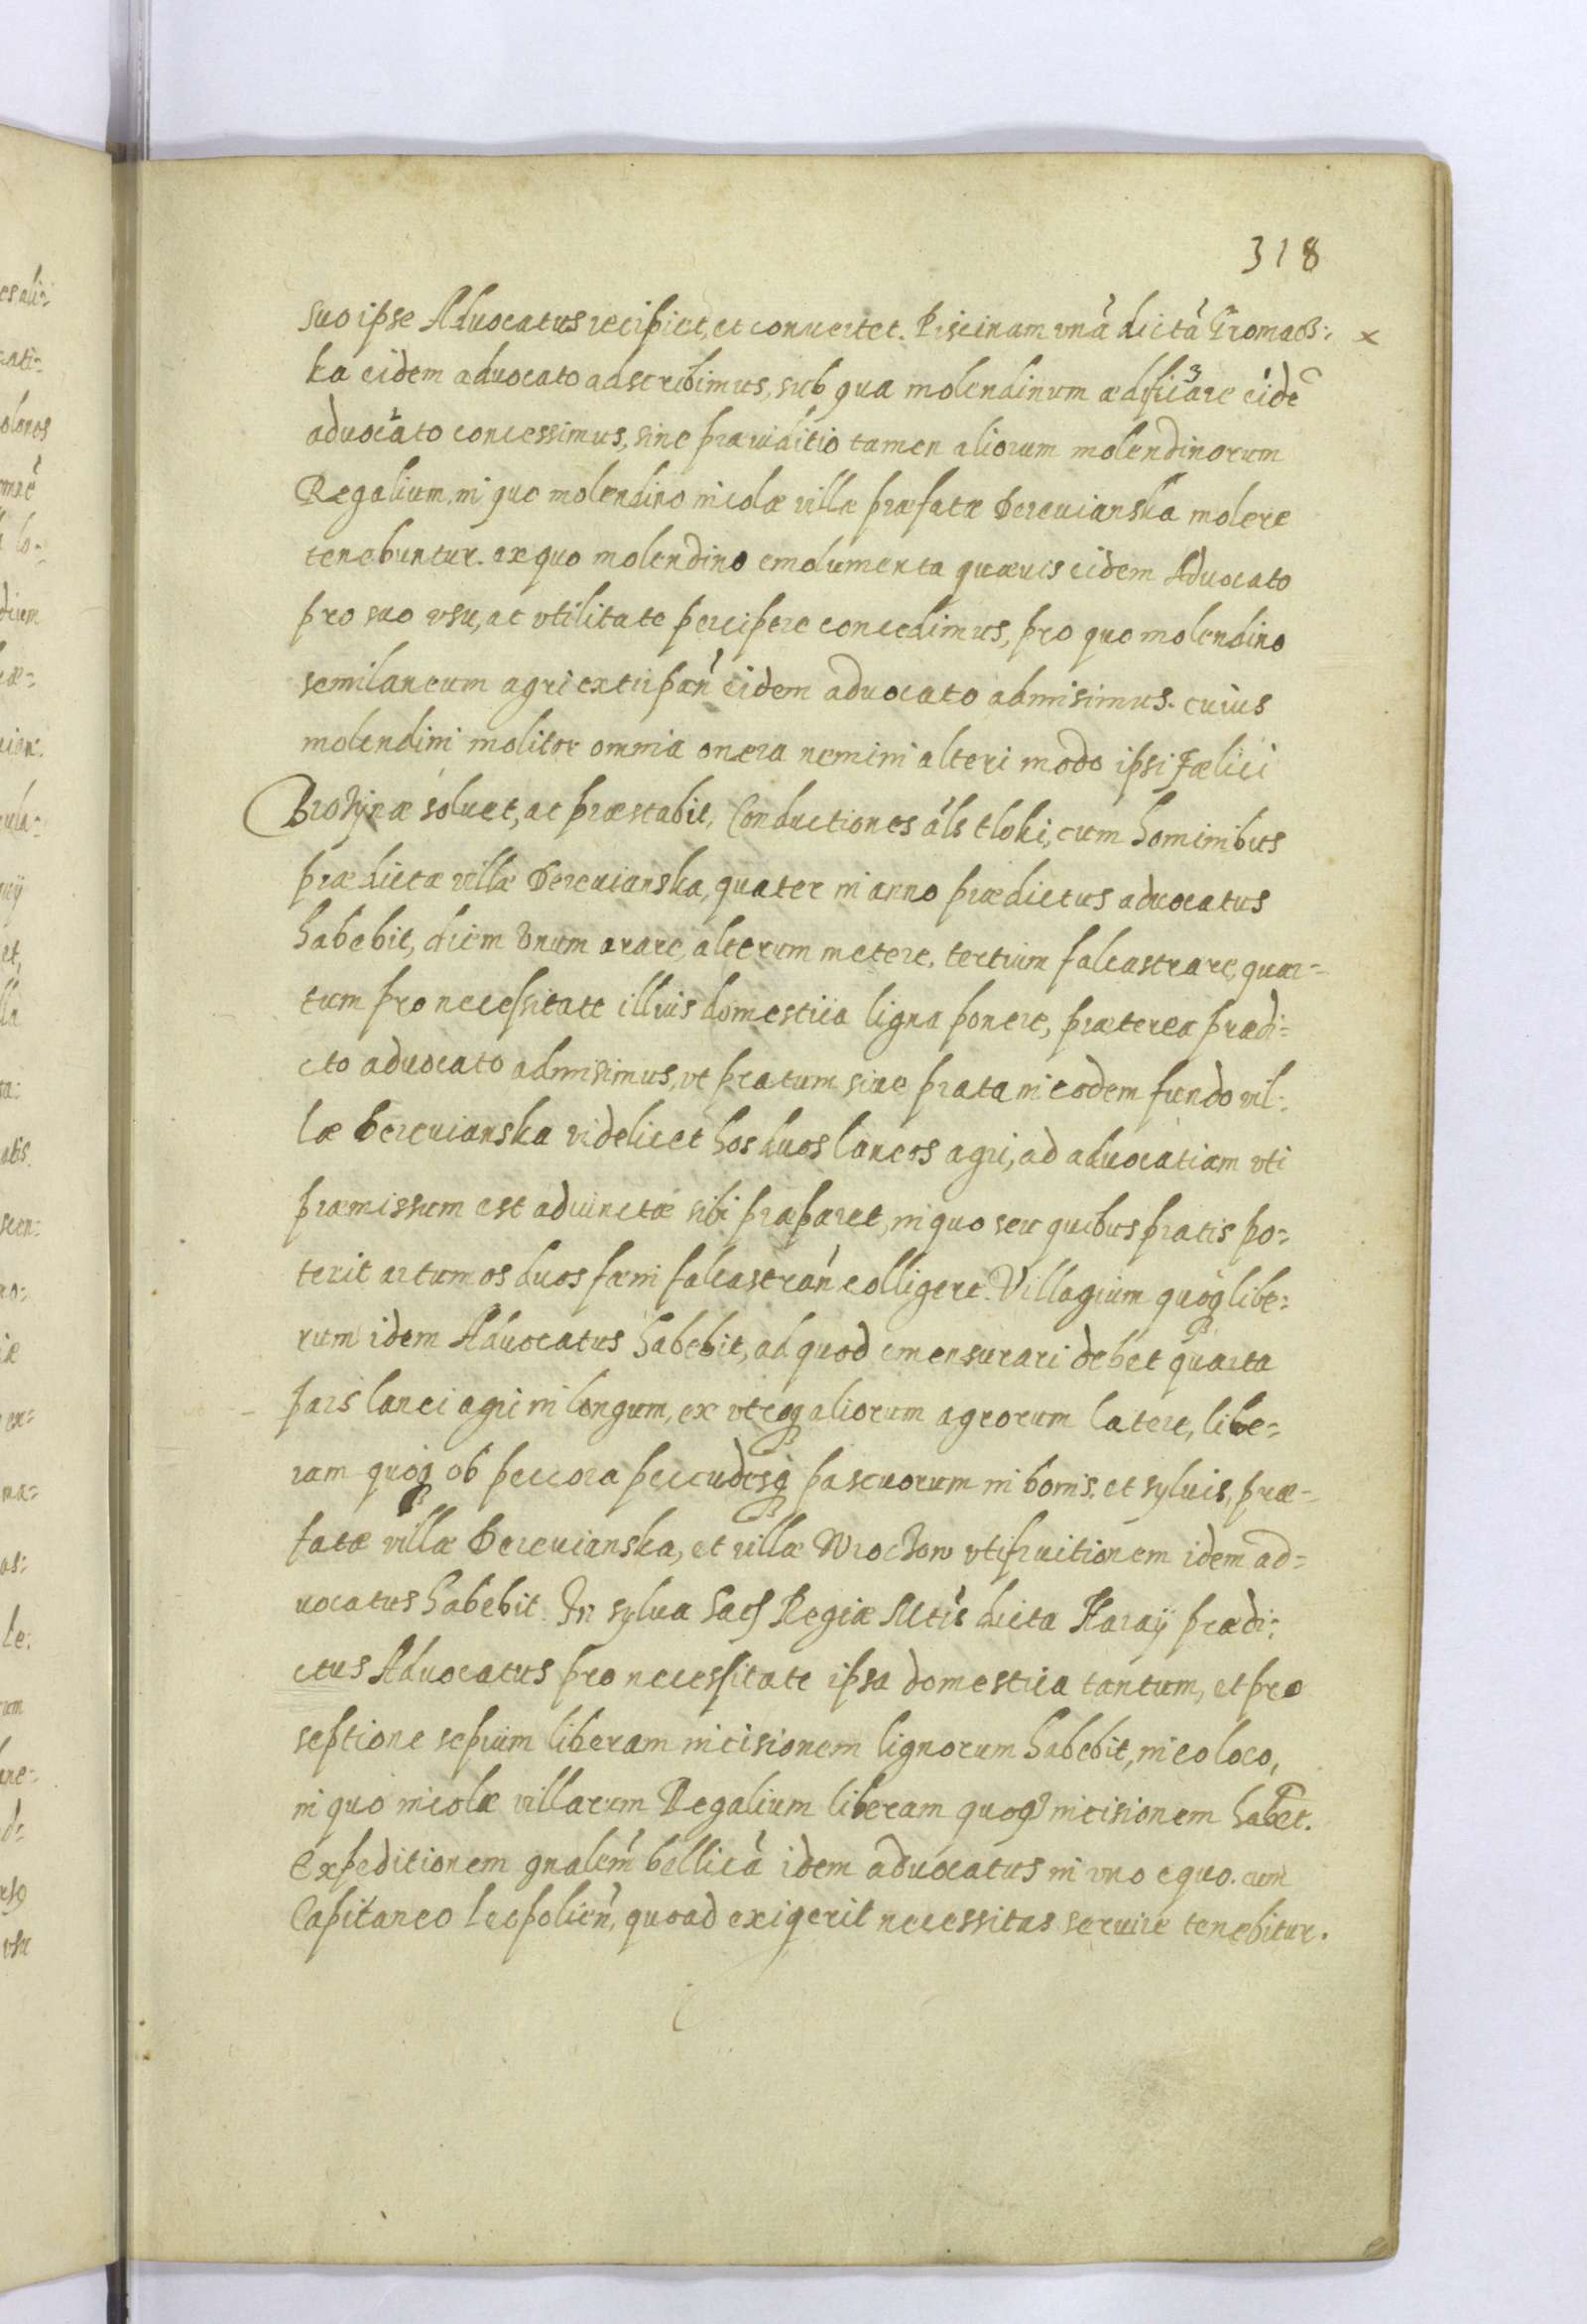 318
suo ipse Aduocatus recipiet, et conuertet. Piscinam vnà dictà Gromads: x
ka eidem aduocato adscribimus, sub qua molendinum ædificare eidē
aduocato concessimus, sine præiuditio tamen aliorum molendinorum
Regalium, in quo molendino incolæ villæ præfatæ Dereuianska molere
tenebuntur. ex quo molendino emolumenta quæuis eidem Aduocato
pro suo vsu, ac vtilitate percipere concedimus, pro quo molendino
semilaneum agri extirpan̄ eidem aduocato admisimus. cuius
molendini molitor omnia onera nemini alteri modo ipsi Fælici
Brozynæ soluet, ac præstabit, Conductiones als tloki, cum hominibus
prædictæ villæ Dereuianska, quater in anno prædictus aduocatus
habebit, diem vnum arare, alterum metere, tertium falcastrare, quar=
tum pro necessitate illius domestica ligna ponere, præterea prædi=
cto aduocato admisimus, vt pratum siue prata in eodem fundo vil=
læ Dereuianska videlicet hos duos laneos agri, ad aduocatiam vti
præmissum est adiunctæ sibi præparet, in quo seu quibus pratis po=
terit artumos duos fæni falcastran̄ colligere. Villagium quoq libe=
rum idem Aduocatus habebit, ad quod emensurari debet quarta
pars lanei agri in longum, ex vtroq aliorum agrorum latere, libe=
ram quoq ob peccora peccudesq pascuorum in bonis. et syluis, præ=
fatæ villæ Dereuianska, et villæ Wrochow vtifruitionem idem ad=
uocatus habebit. In sylua Sacȝ Regiæ Mtis dicta Haraÿ prædi=
ctus Aduocatus pro necessitate ipsa domestica tantum, et pro
septione sepium liberam incisionem lignorum habebit, in eo loco,
in quo incolæ villarum Regalium liberam quoq incisionem habēt.
Expeditionem gnalem̄ bellicà idem aduocatus in vno equo. cum
Capitaneo Leopolien̄, quoad exigerit necessitas seruire tenebitur.